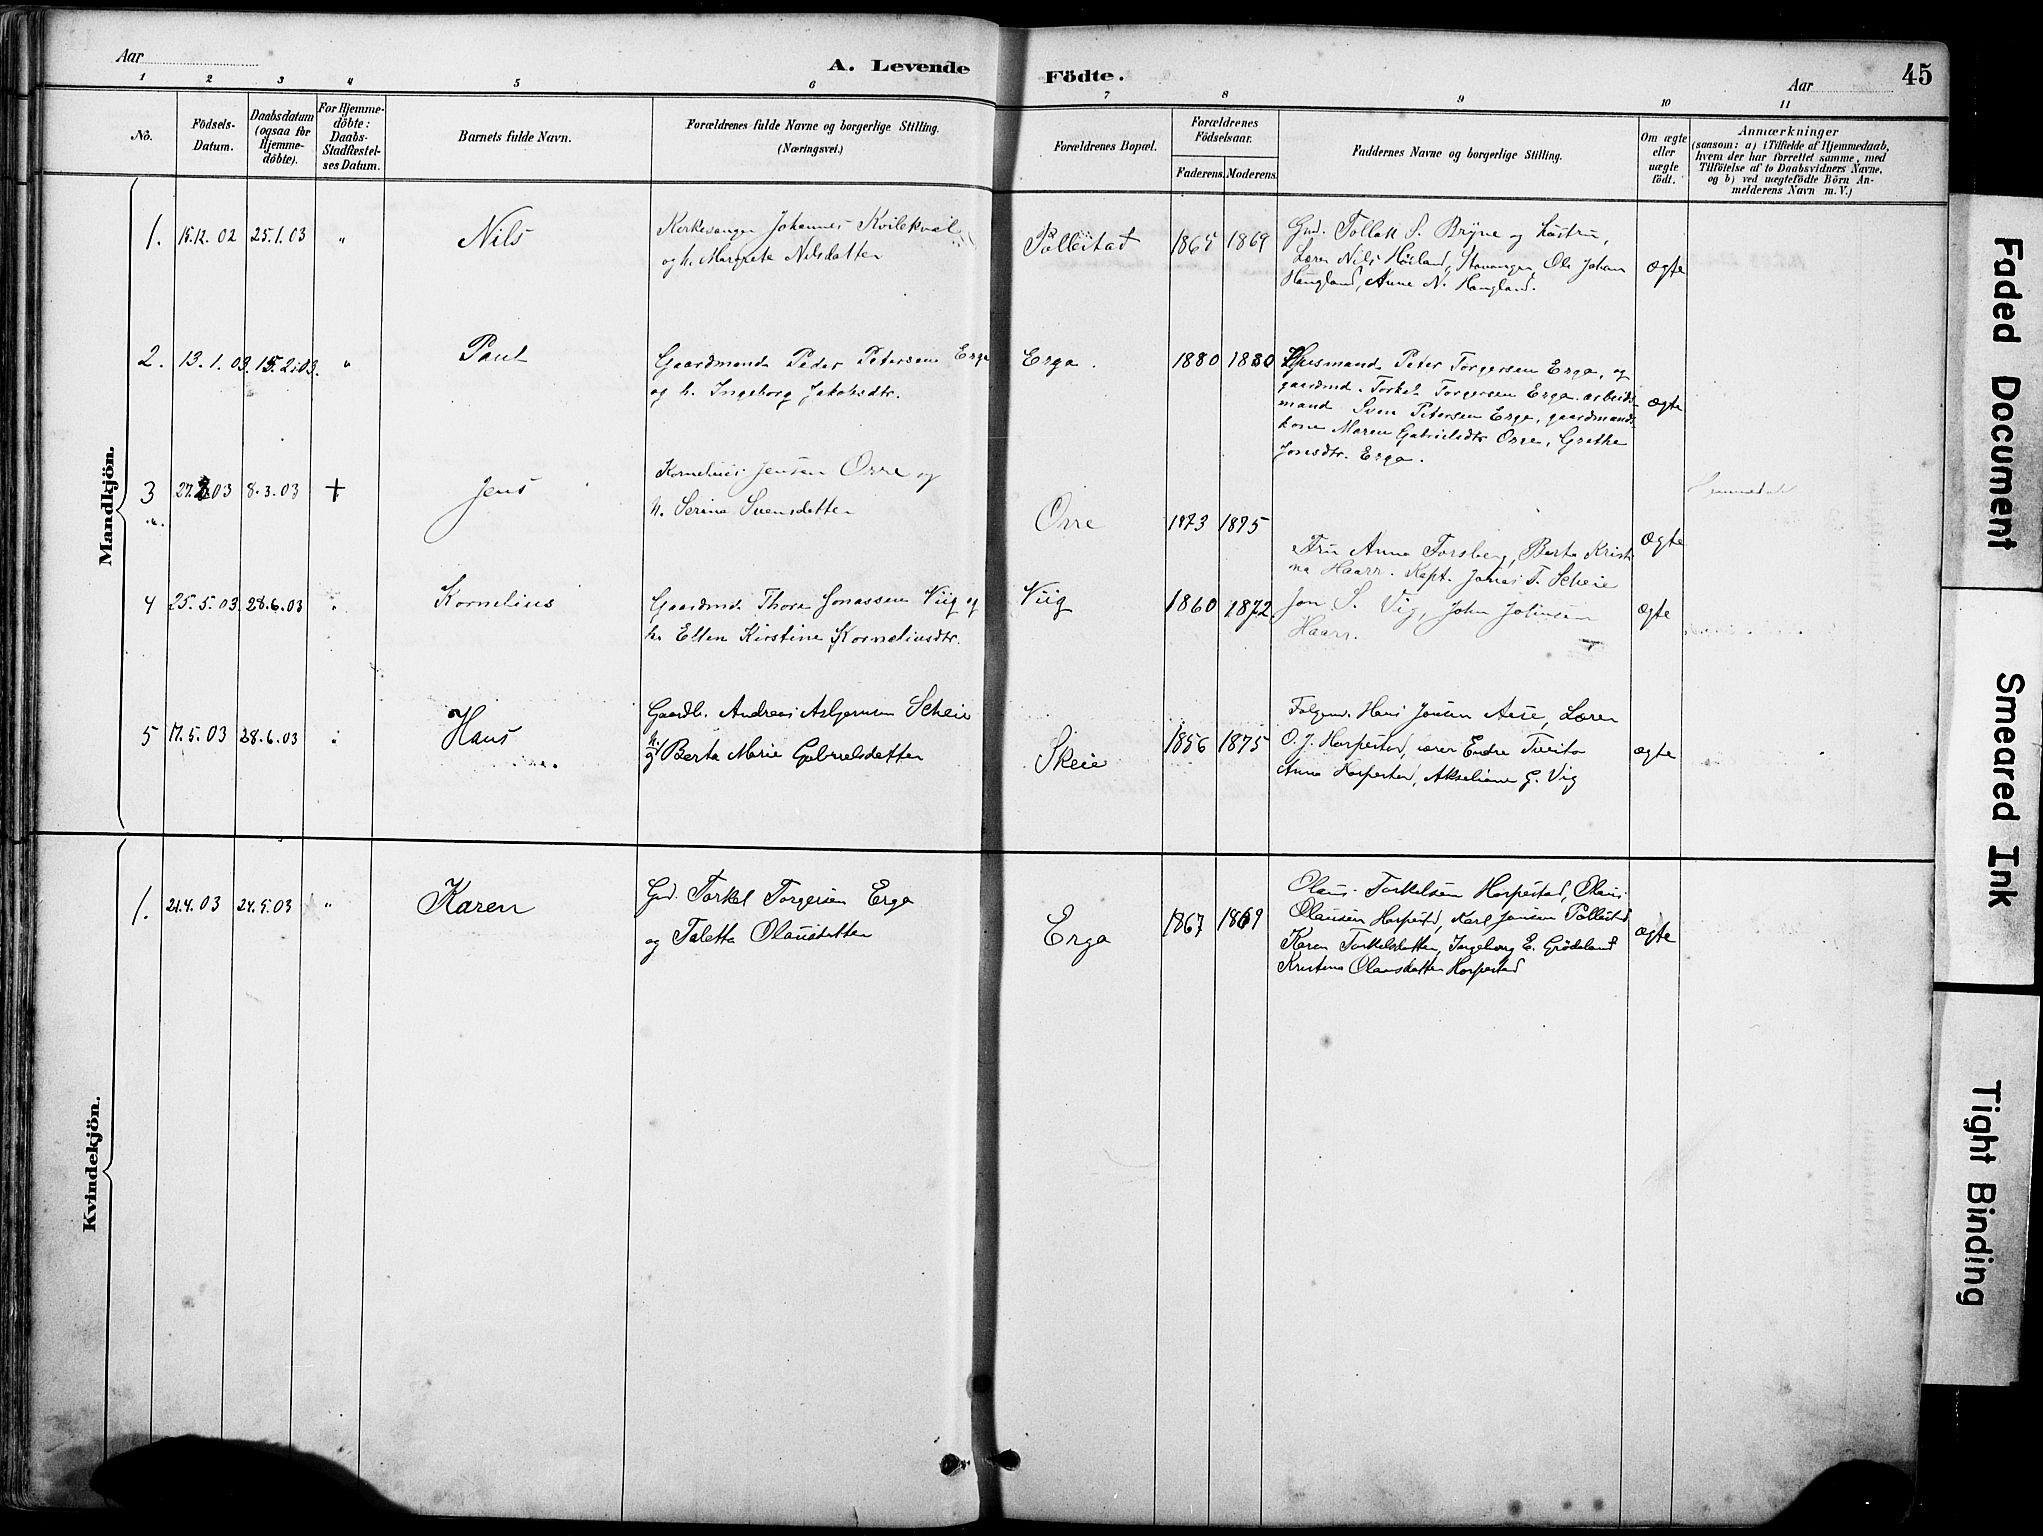 Aar
A. Levende
Födte.
Aar
45
1 2 3 4 5 6 7 8 9 10 11
No.
Födsels-
Datum.
Daabsdatum
(ogsaa for
Hjemme-
döbte).
For Hjemme-
döbte:
Daabs-
Stadfæstel-
ses Datum.
Barnets fulde Navn.
Forældrenes fulde Navne og borgerlige Stilling.
(Næringsvei.)
Forældrenes Bopæl.
Forældrenes
Födselsaar.
Faderens. Moderens.
Faddernes Navne og borgerlige Stilling.
Om ægte
eller
uægte
födt.
Anmærkninger
(saasom: a) i Tilfælde af Hjemmedaab,
hvem der har forrettet samme, med
Tilföielse af to Daabsvidners Navne,
og b) ved uægtefödte Börn An-
melderens Navn m. V.)
Mandkjön.
1. 15.12.02 25.1.03 " Nils
Kirkesanger Johannes Kvilekval
og h. Margrete Nilsdatter
Pollestad 1865 1869
Gmd. Tollak S. Bryne og hustru,
Lærer Nils Höiland, Stavanger, Ole Johan
Haugland, Anne N. Haugland.
ægte
2. 13.1.03 15.2.03. " Paul
Gaardmand Peder Petersen Erga
og h. Ingeborg Jakobsdtr.
Erga. 1880 1880
Husmand Peter Torgersen Erga, og
gaardmd. Torkel Torgersen Erga, arbeids-
mand Sven Petersen Erga, gaardmands
kone Maren Gabrielsdtr Orre, Grethe
Jonsdtr. Erga.
ægte
3 27.2.03 8.3.03 + Jens
Kornelius Jensen Orre og
h. Serina Svensdatter
Orre 1873 1875 ægte
4 25.5.03 28.6.03 " Kornelius
Gaardmd. Thore Jonassen Viig og
h. Ellen Kirstine Korneliusdtr.
Viig 1860 1872
Fru Anna Forsberg, Berta Kristi-
na Haarr. Kapt. Jonas T. Scheie
Jon S. Vig, John Johnsen
Haarr.
ægte
5 17.5.03 28.6.03 " Hans
Gaardb. Andreas Asbjørnsen Scheie
og h. Berta Marie Gabrielsdatter
Skeie 1856 1875
Folgemd. Hans Jonsen Aase, Lærer
O. J. Horpestad, lærer Endre Tveito
Anna Horpestad, Akseliane G. Vig
ægte
Kvindekjön.
1. 21.4.03 24.5.03 " Karen
Gmd. Torkel Torgersen Erga
og Taletta Olausdatter
Erga 1867 1869
Olaus Torkelsen Horpestad, Olaus
Olausen Horpestad, Karl Jonsen Pollestad
Karen Torkelsdatter, Ingeborg E. Grödeland
Kristena Olausdatter Horpestad
ægte
Faded Document
Smeared Ink
Tight Binding